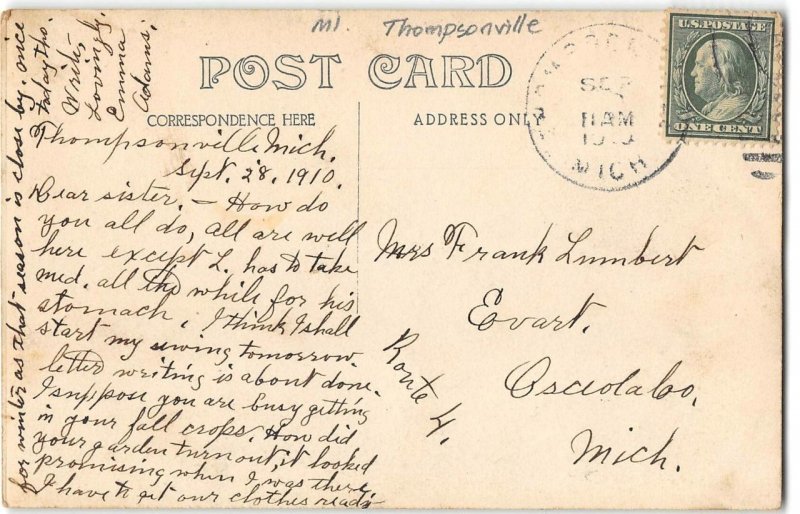 MI Thompsonville
POST CARD
CORRESPONDENCE HERE
ADDRESS ONLY
U.S. POSTAGE
ONE CENT
SEP
11 AM
MICH
Thompsonville, Mich.
Sept. 28, 1910.
Dear sister. — How do
you all do, all are well
here except L. has to take
med. all the while for his
stomach. I think I shall
start my sewing tomorrow
letter writing is about done.
I suppose you are busy getting
in your fall crops. How did
your garden turn out, it looked
promising when I was there
I have to get our clothes ready
for winter as that season is close by, nice
today tho.
Write,
Lovingly,
Emma
Adams.
Mrs Frank Lumbert
Evart.
Osceola Co,
Mich.
Route 4.